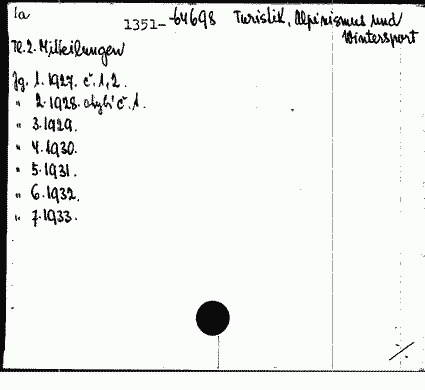 1a 1351-64698 Turistik, Alpinismus und
Wintersport
Mitteilungen
Jg. 1. 1927. č. 1, 2.
" 2. 1928. chybí č. 1.
" 3. 1929.
" 4. 1930.
" 5. 1931.
" 6. 1932.
" 7. 1933.